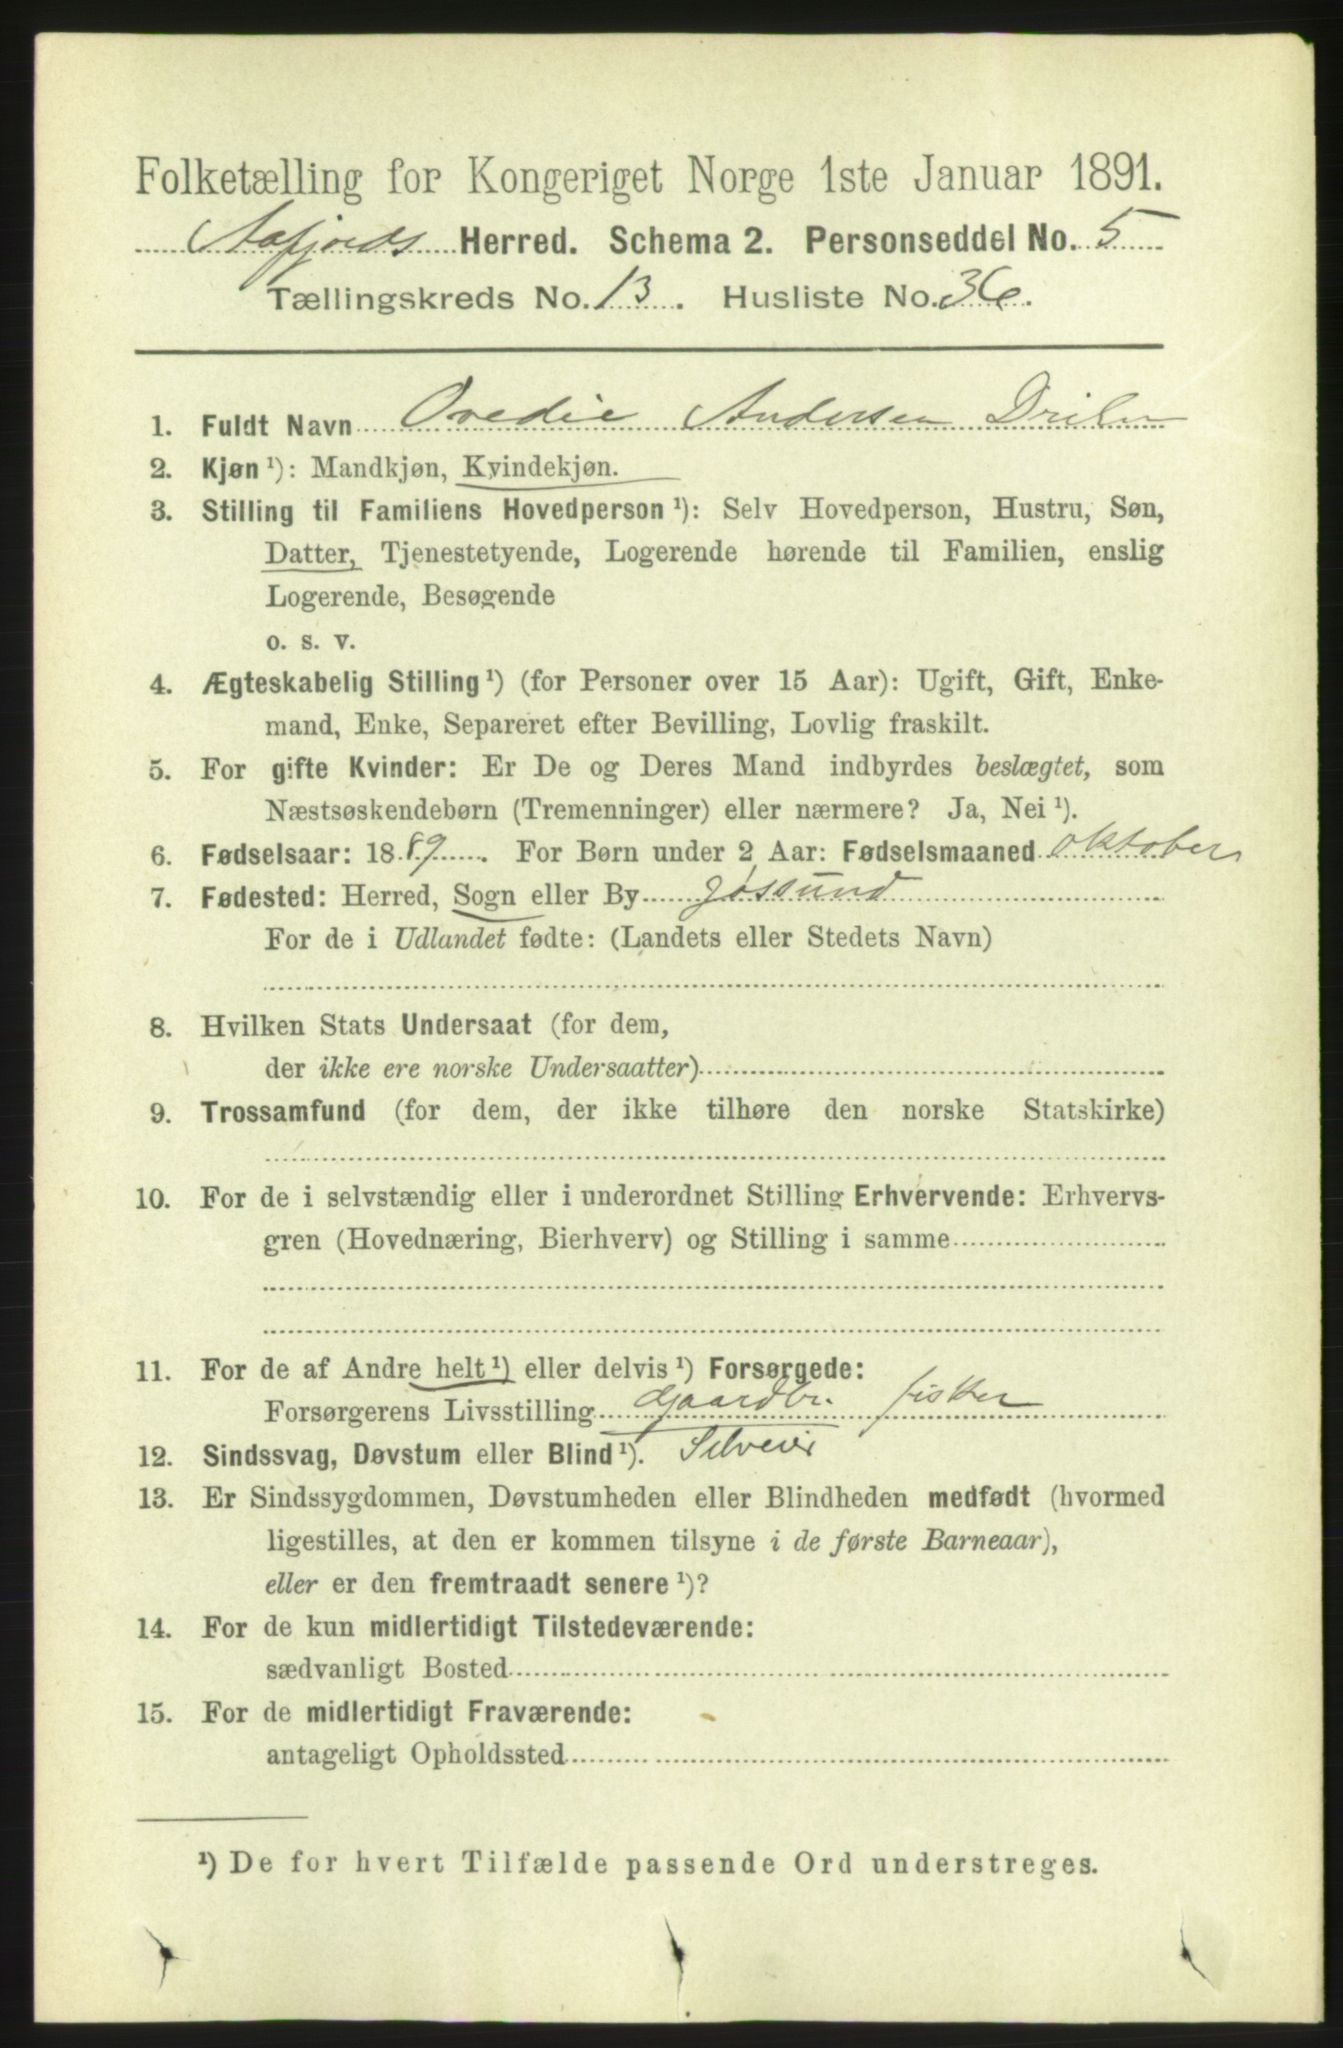 Folketælling for Kongeriget Norge 1ste Januar 1891.
Aafjords Herred. Schema 2. Personseddel No. 5
Tællingskreds No. 13. Husliste No. 36.
1. Fuldt Navn Ovedie Andersen
2. Kjøn ¹): Mandkjøn, Kvindekjøn.
3. Stilling til Familiens Hovedperson ¹): Selv Hovedperson, Hustru, Søn,
Datter, Tjenestetyende, Logerende hørende til Familien, enslig
Logerende, Besøgende
o. s. v.
4. Ægteskabelig Stilling ¹) (for Personer over 15 Aar): Ugift, Gift, Enke-
mand, Enke, Separeret efter Bevilling, Lovlig fraskilt.
5. For gifte Kvinder: Er De og Deres Mand indbyrdes beslægtet, som
Næstsøskendebørn (Tremenninger) eller nærmere? Ja, Nei ¹).
6. Fødselsaar: 1889. For Børn under 2 Aar: Fødselsmaaned oktober
7. Fødested: Herred, Sogn eller By Jøssund
For de i Udlandet fødte: (Landets eller Stedets Navn)
8. Hvilken Stats Undersaat (for dem,
der ikke ere norske Undersaatter)
9. Trossamfund (for dem, der ikke tilhøre den norske Statskirke)
10. For de i selvstændig eller i underordnet Stilling Erhvervende: Erhvervs-
gren (Hovednæring, Bierhverv) og Stilling i samme
11. For de af Andre helt ¹) eller delvis ¹) Forsørgede:
Forsørgerens Livsstilling Gaardbr. fisker
12. Sindssvag, Døvstum eller Blind ¹). Selveier
13. Er Sindssygdommen, Døvstumheden eller Blindheden medfødt (hvormed
ligestilles, at den er kommen tilsyne i de første Barneaar),
eller er den fremtraadt senere ¹)?
14. For de kun midlertidigt Tilstedeværende:
sædvanligt Bosted
15. For de midlertidigt Fraværende:
antageligt Opholdssted
¹) De for hvert Tilfælde passende Ord understreges.